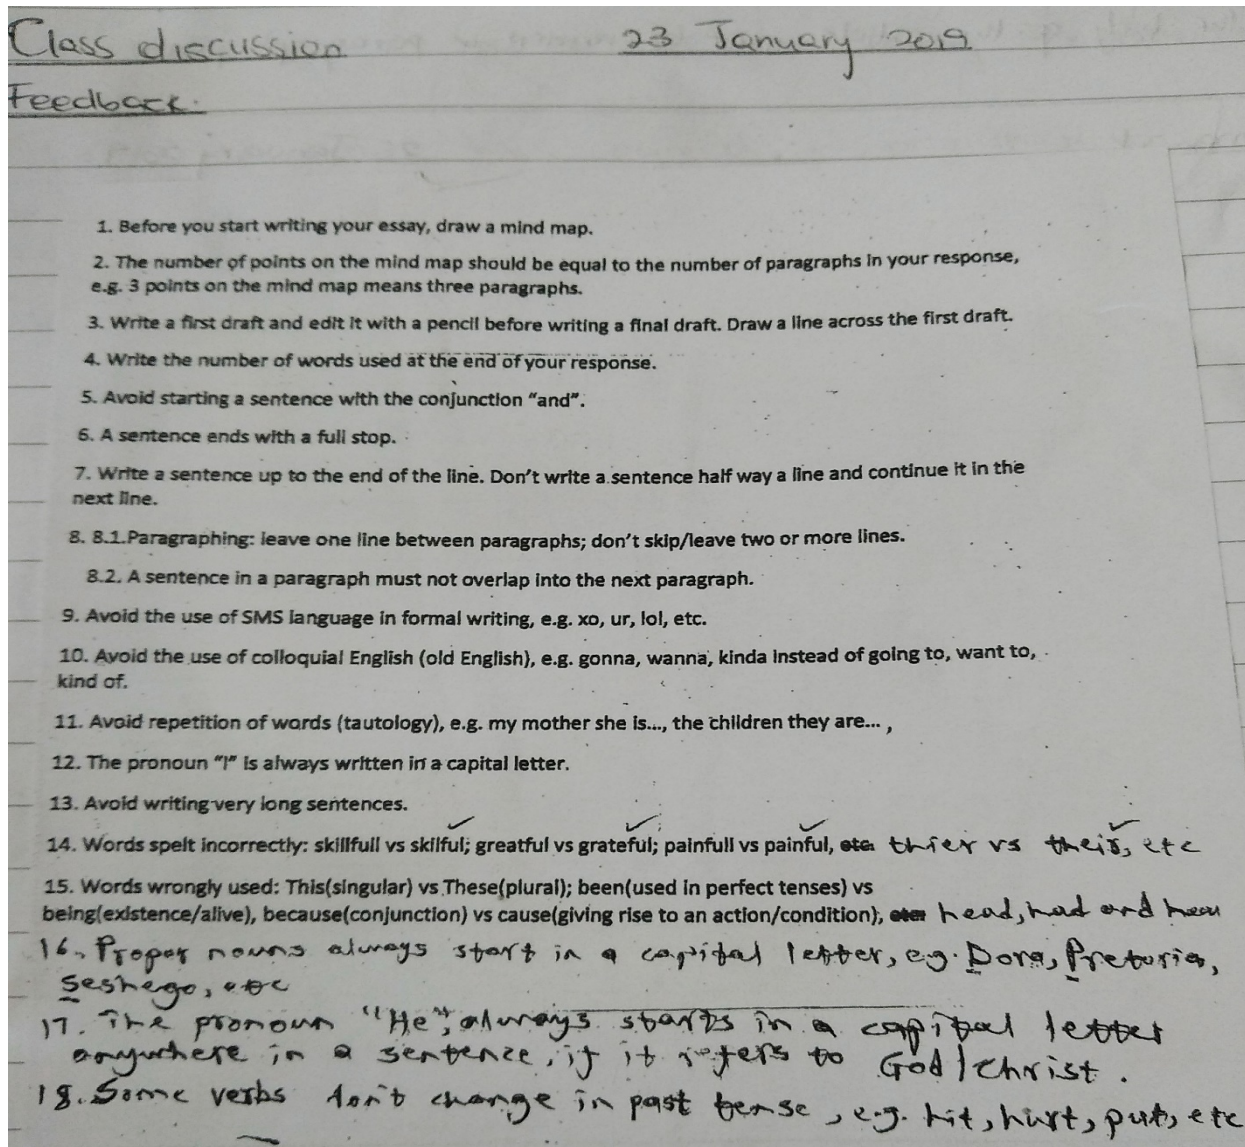 Class discussion 23 January 2019
Feedback:
1. Before you start writing your essay, draw a mind map.
2. The number of points on the mind map should be equal to the number of paragraphs in your response,
e.g. 3 points on the mind map means three paragraphs.
3. Write a first draft and edit it with a pencil before writing a final draft. Draw a line across the first draft.
4. Write the number of words used at the end of your response.
5. Avoid starting a sentence with the conjunction "and".
6. A sentence ends with a full stop.
7. Write a sentence up to the end of the line. Don't write a sentence half way a line and continue it in the
next line.
8. 8.1.Paragraphing: leave one line between paragraphs; don't skip/leave two or more lines.
8.2. A sentence in a paragraph must not overlap into the next paragraph.
9. Avoid the use of SMS language in formal writing, e.g. xo, ur, lol, etc.
10. Avoid the use of colloquial English (old English), e.g. gonna, wanna, kinda instead of going to, want to,
kind of.
11. Avoid repetition of words (tautology), e.g. my mother she is..., the children they are... ,
12. The pronoun "I" is always written in a capital letter.
13. Avoid writing very long sentences.
14. Words spelt incorrectly: skillfull vs skilful; greatful vs grateful; painfull vs painful, etc. thier vs their, etc
15. Words wrongly used: This(singular) vs These(plural); been(used in perfect tenses) vs
being(existence/alive), because(conjunction) vs cause(giving rise to an action/condition), etc. head, had and
16. Proper nouns always start in a capital letter, eg. Dora, Pretoria,
Seshego, etc
17. The pronoun "He", always starts in a capital letter
anywhere in a sentence, if it refers to God/Christ.
18. Some verbs don't change in past tense, e.g. hit, hurt, put, etc